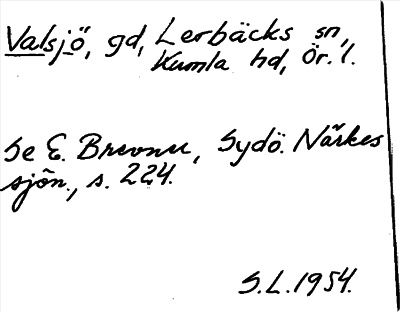 Valsjö, gd, Lerbäcks sn,
Kumla hd, Ör. l.
Se E. Brevner, Sydö. Närkes
sjön., s. 224.
S.L. 1954.